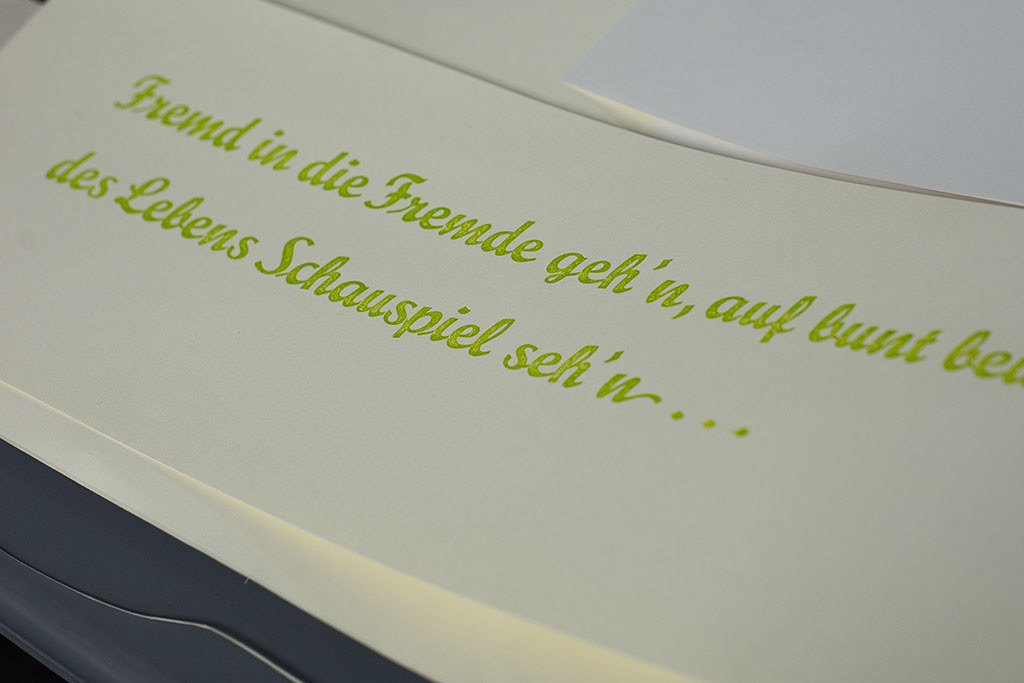 Fremd in die Fremde geh'n, auf bunt
des Lebens Schauspiel seh'n...